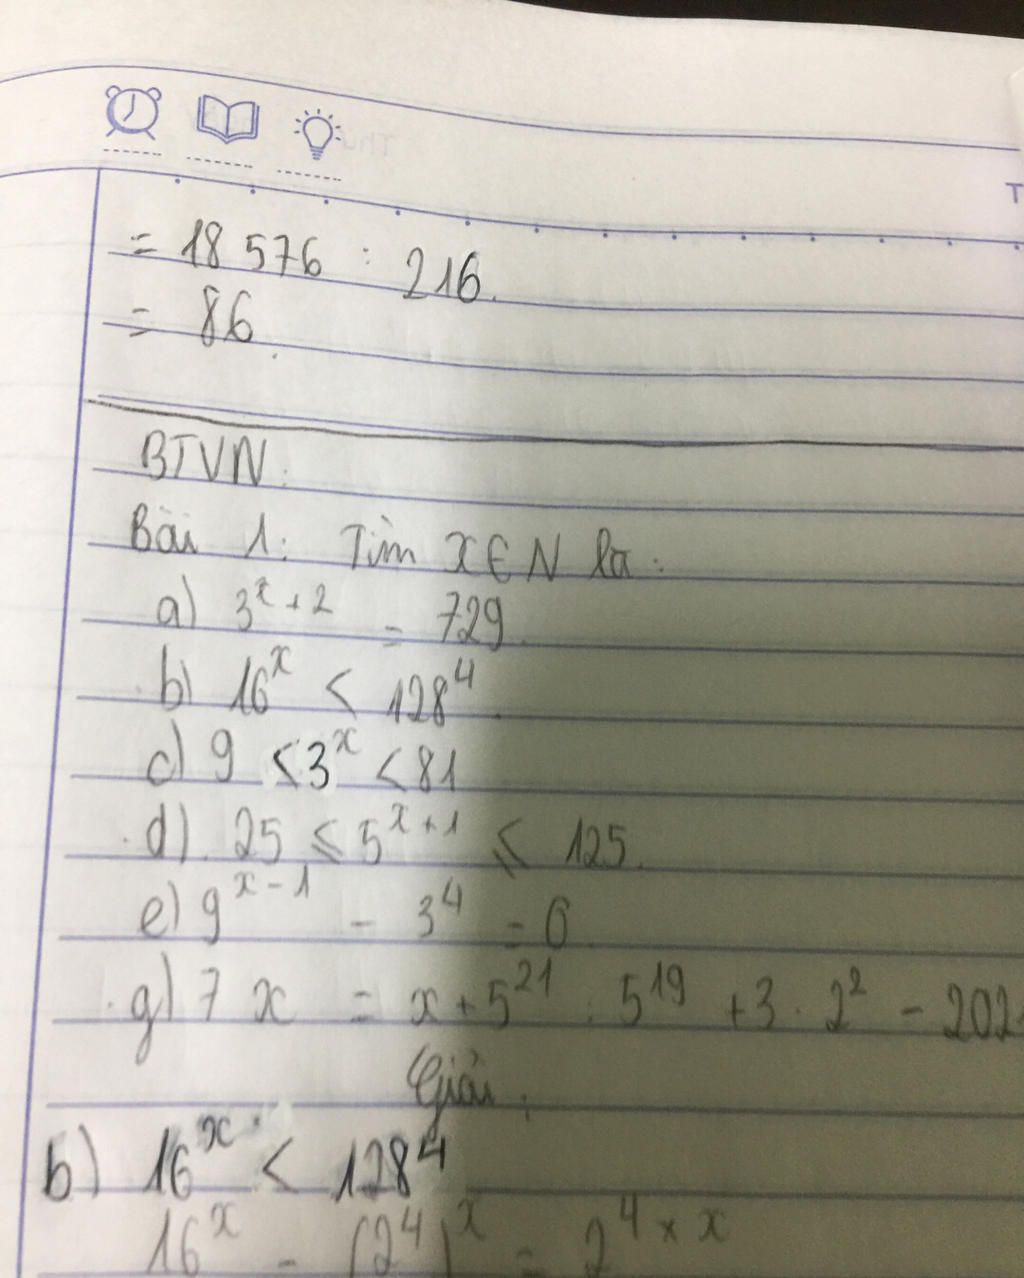 T
= 18 576 : 216.
= 86.
BTVN:
Bài 1: Tìm x ∈ N là:
a) 3^x + 2 = 729.
b) 16^x < 128^4.
c) 9 < 3^x < 81
d). 25 ≤ 5^{x+1} ≤ 125.
e) 9^{x-1} - 3^4 = 0
g) 7 x = x + 5^{21} : 5^{19} + 3 . 2^2 - 202
Giải:
b) 16^x < 128^4
16^x = (2^4)^x = 2^{4 × x}